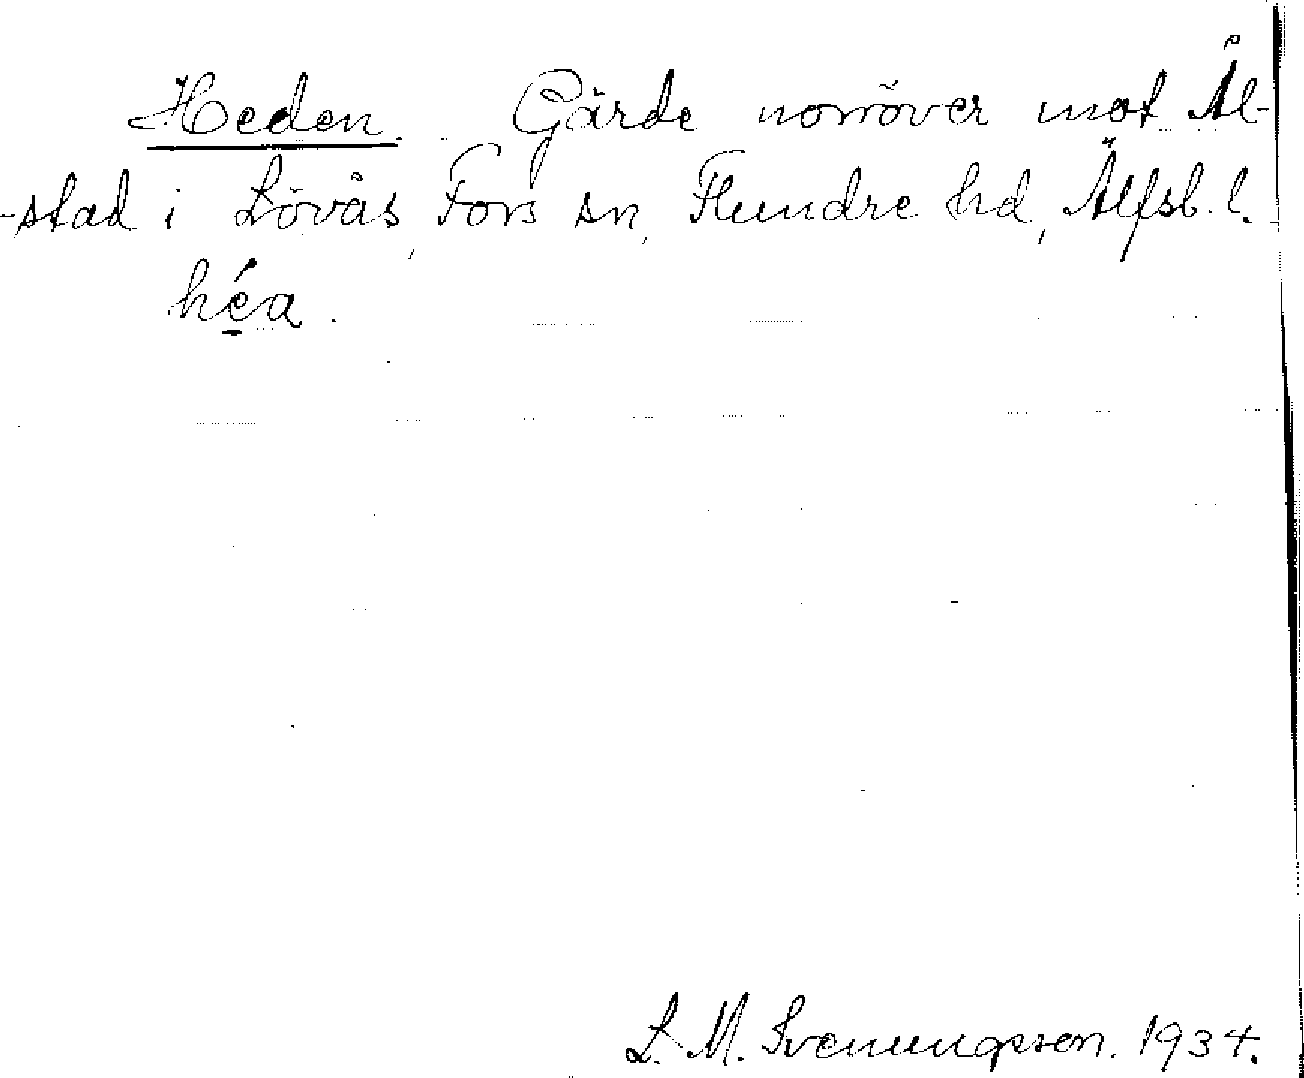 Heden. Gärde norröver mot Ål-
-stad i Lövås, Fors sn, Flundre hd, Älfsb. l.
hé̱a.
L. M. Svenungsson. 1934.